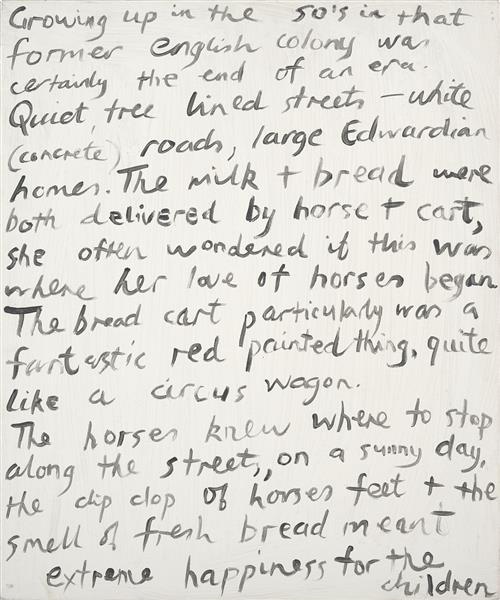 Growing up in the 50's in that
former english colony was
certainly the end of an era.
Quiet, tree lined streets – white
(concrete) roads, large Edwardian
homes. The milk + bread were
both delivered by horse + cart,
she often wondered if this was
where her love of horses began
The bread cart particularly was a
fantastic red painted thing, quite
like a circus wagon.
The horses knew where to stop
along the street, on a sunny day,
the clip clop of horses feet + the
smell of fresh bread meant
extreme happiness for the
children